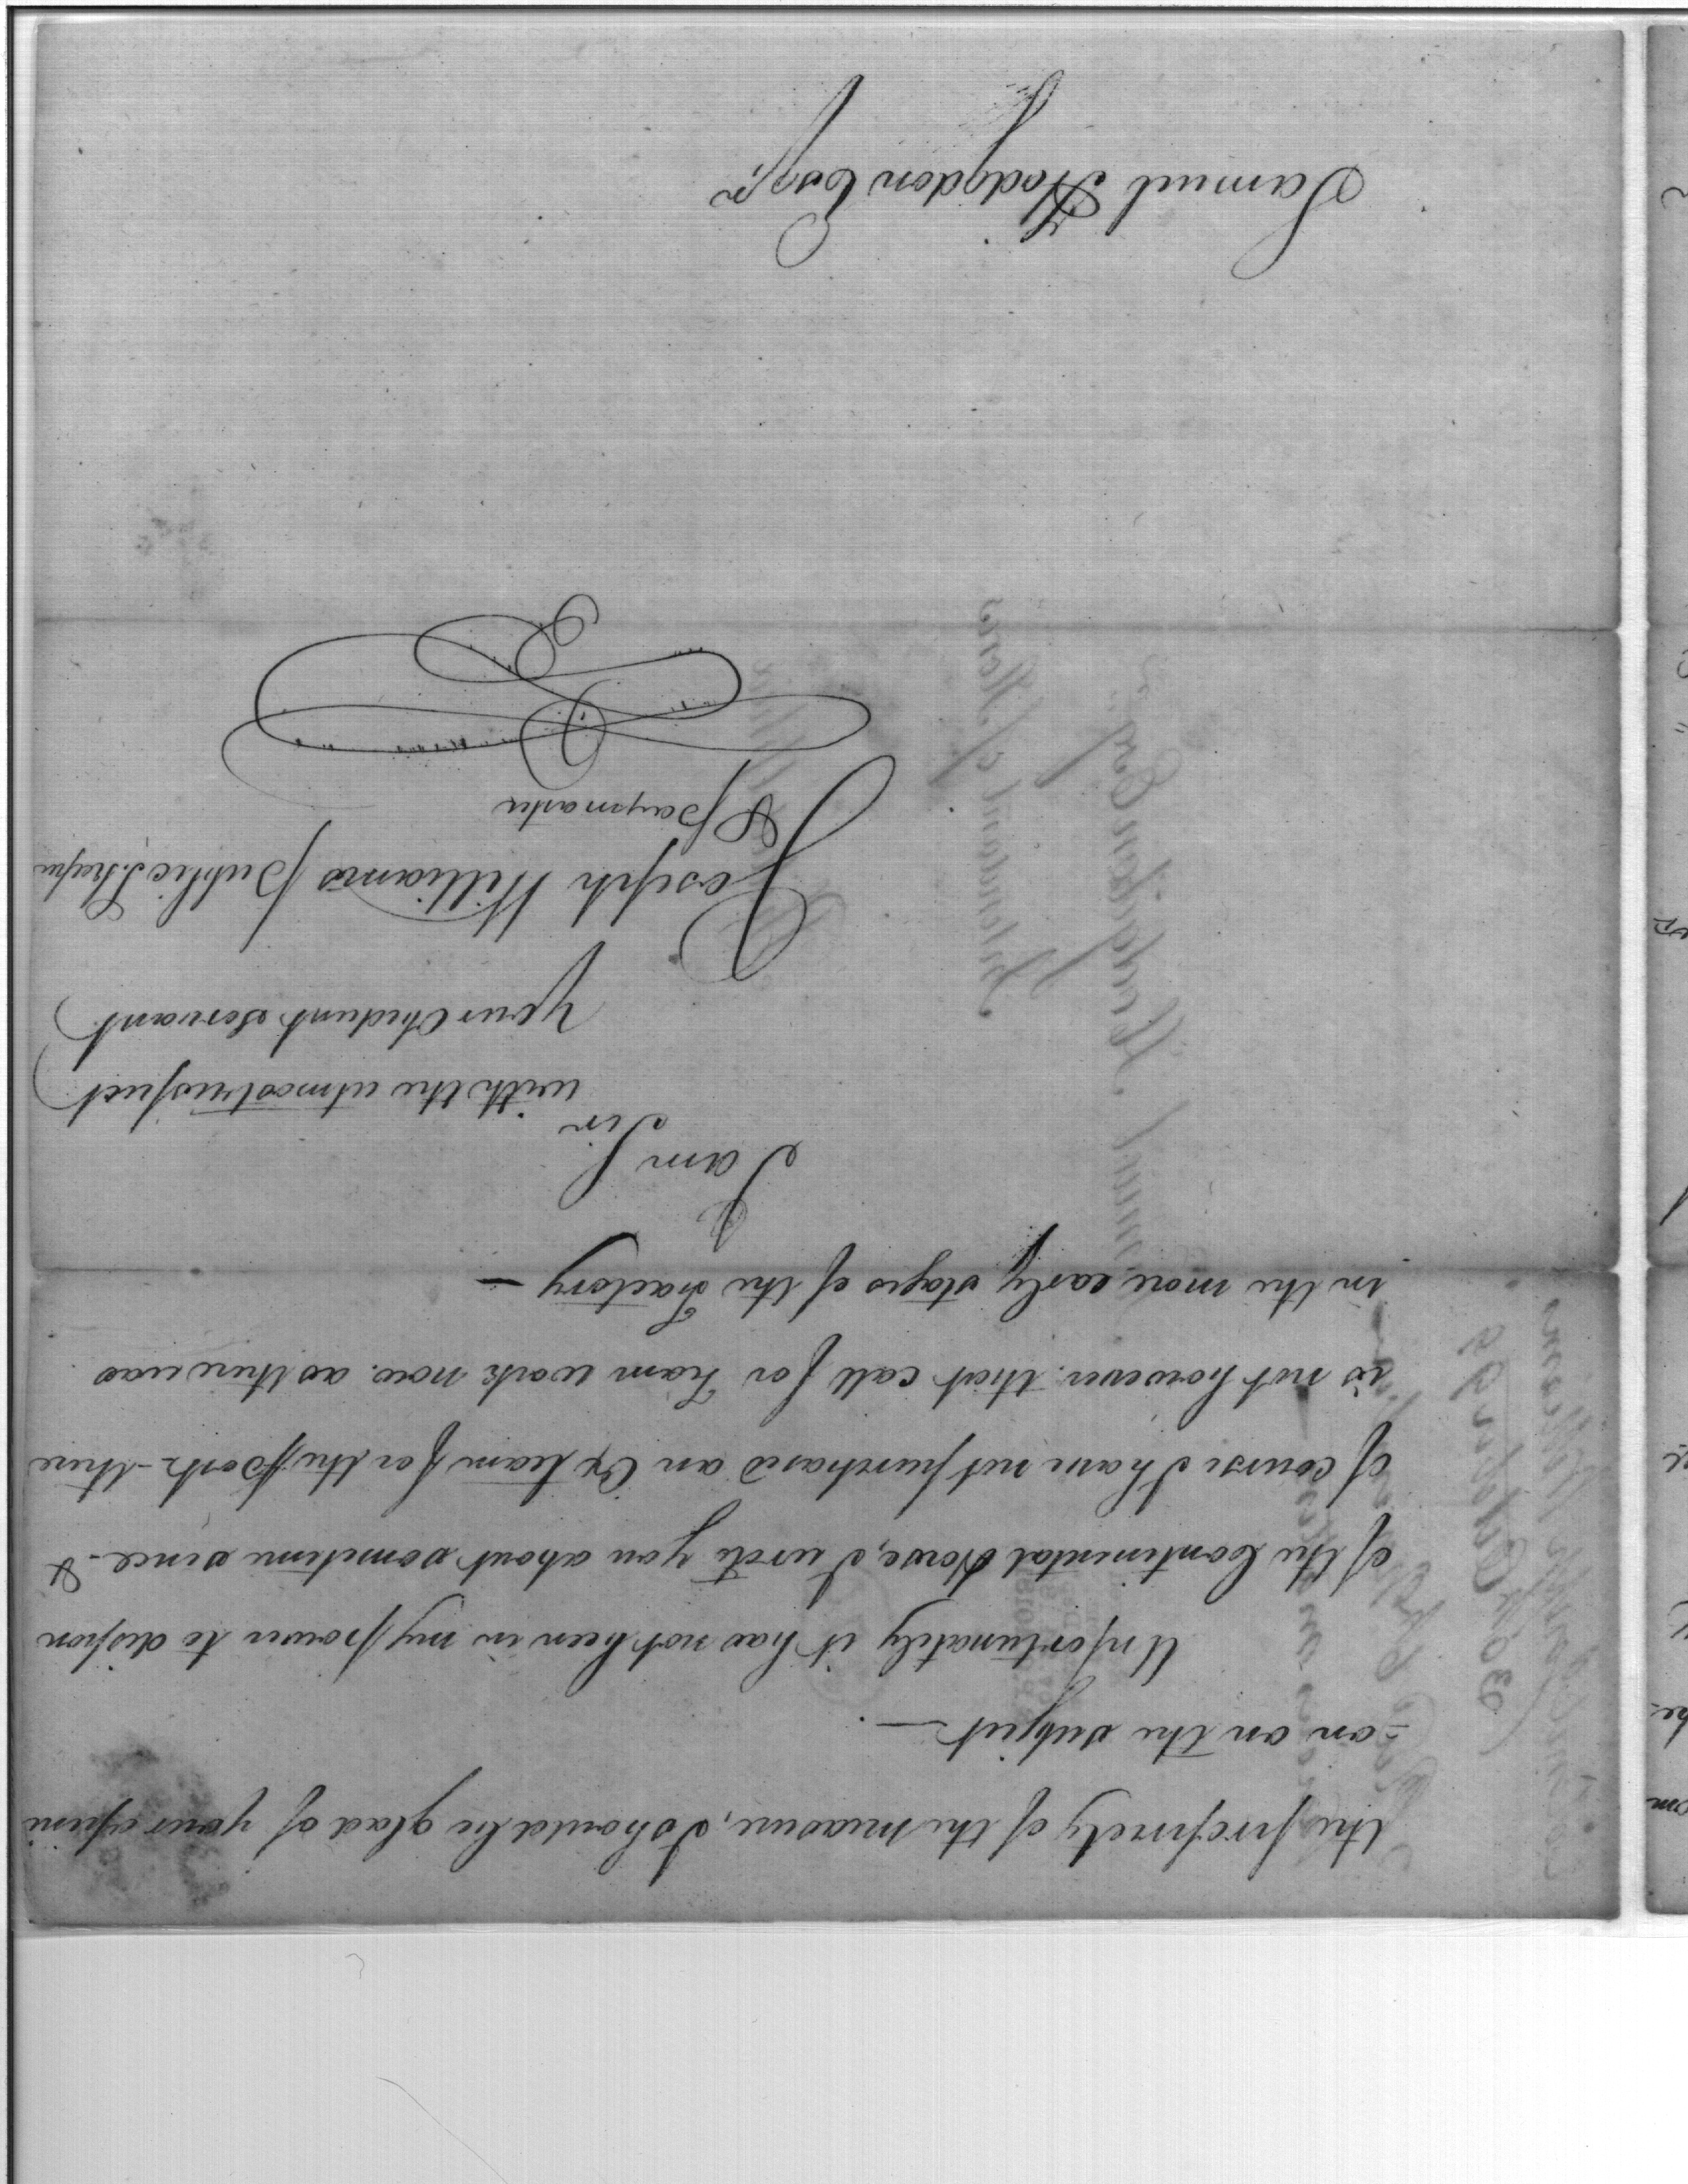 the propriety of the measure, I should be glad of your opini
=on on the subject —
Unfortunately it has not been in my power to dispose
of the Continental Horse, I wrote you about sometime since - &
of course I have not purchased an Ox team for the Post - there
is not however that call for Team work now as there was
in the more early stages of the Factory —
I am
Sir
with the utmost respect
Your Obedient Servant
Joseph Williams Public S.keeper
& paymaster
Samuel Hodgdon Esqr